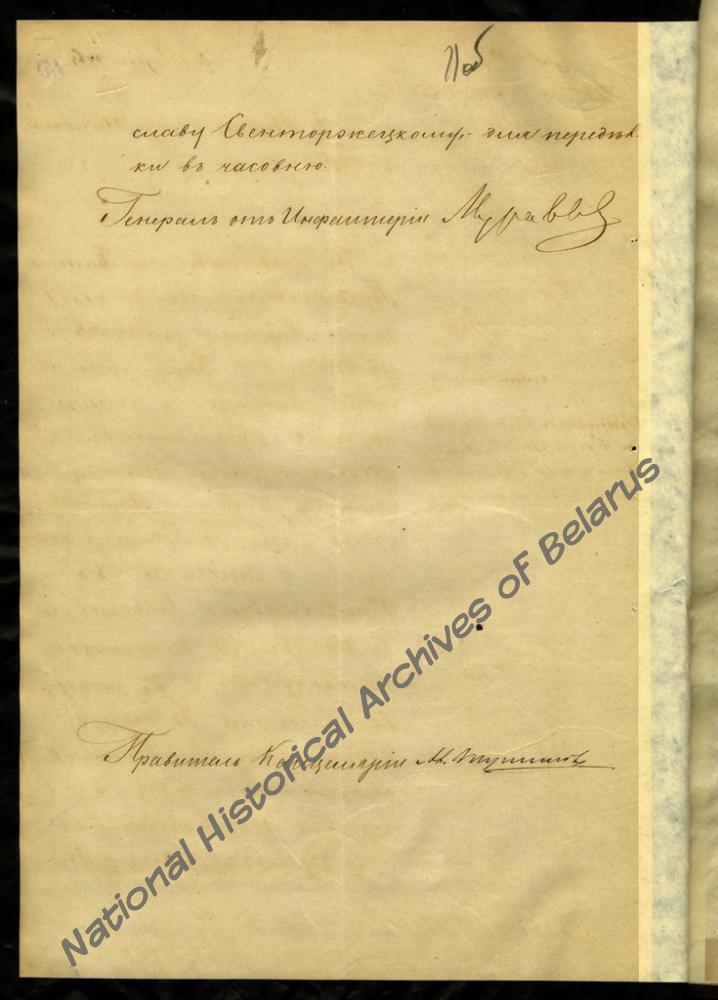 11об
славу Свенторжецкому,- для передѣл-
ки въ часовню.
Генералъ отъ Инфантеріи Муравьев
Правитель Канцеляріи
National Historical Archives of Belarus